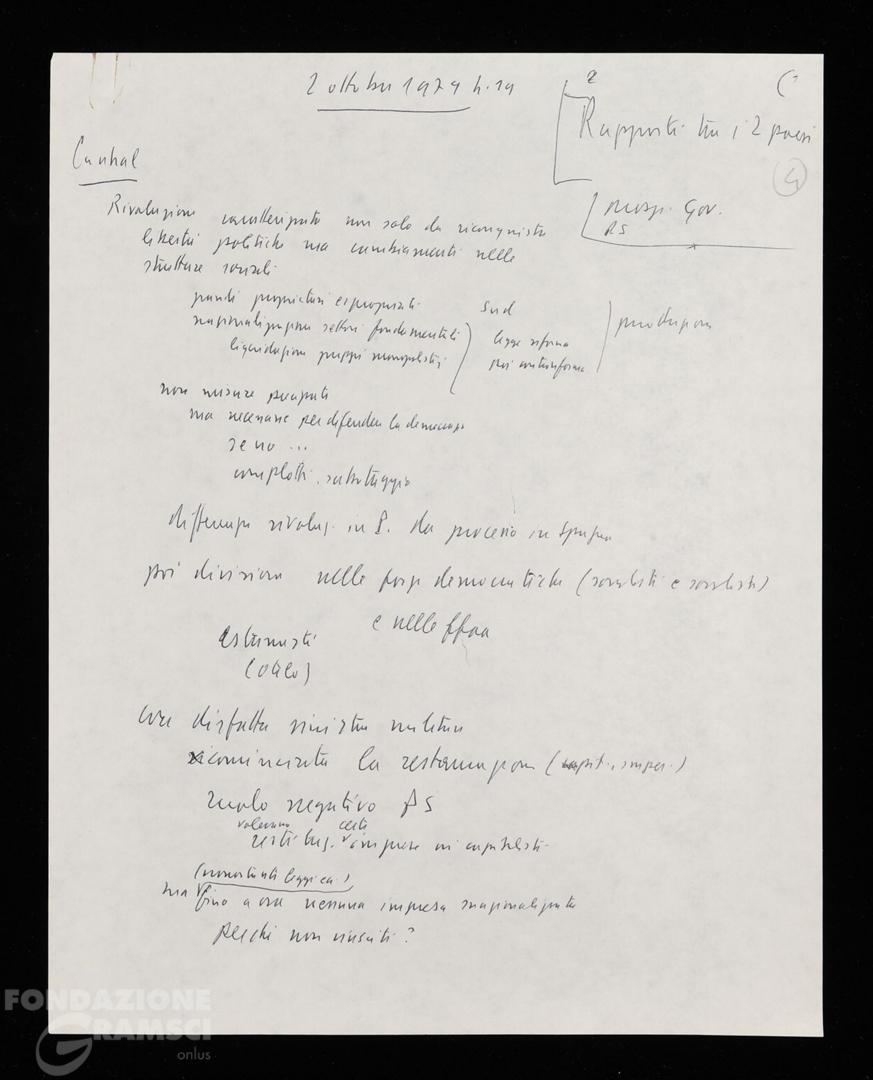 2 ottobre 1979 h. 19
2
Rapporti tra i 2 paesi
4
Gov.
PS
Cunhal
Rivoluzione caratterizzata non solo da riconquista
libertà politiche ma cambiamenti nelle
strutture sociali
grandi proprietari espropriati
nazionalizzazione settori fondamentali
liquidazione gruppi monopolistici
Sud
legge riforma
poi controriforma
produzione
non misure
ma necessarie per difendere la democrazia
se no ...
complotti, sabotaggio
differenza rivoluz. in P. da processo in Spagna
poi divisione nelle forze democratiche (socialisti e socialisti)
e nelle ffaa
estremisti
(Otelo)
con disfatta sinistra militare
ricominciata la restaurazione (capit., imper.)
ruolo negativo PS
volevano certe
restituz. imprese ai capitalisti
(nonostante leggi ecc.)
ma fino a ora nessuna impresa snazionalizzata
perché non riusciti?
FONDAZIONE
GRAMSCI
onlus